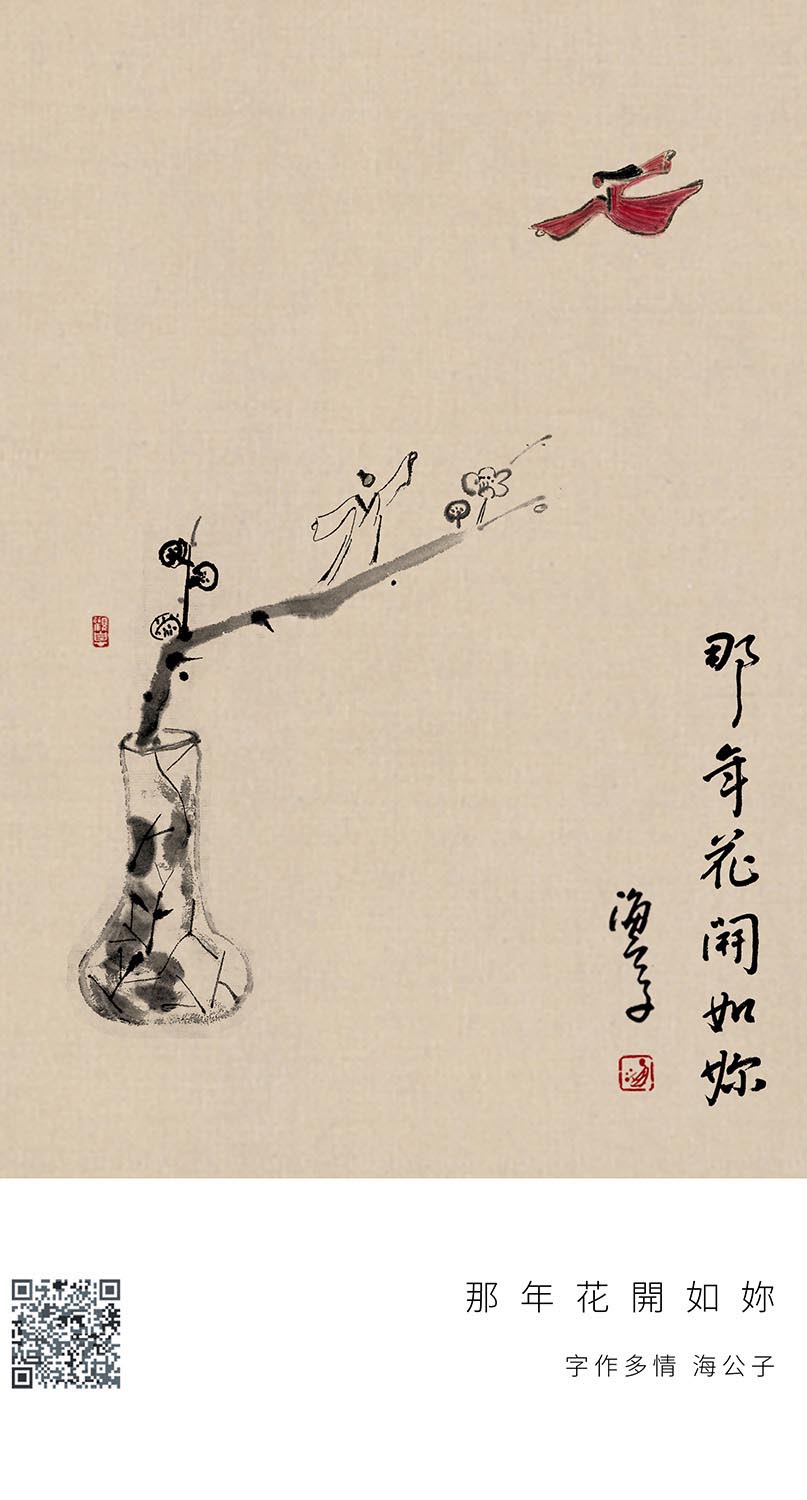 那年花開如妳
海公子
那年花開如妳
字作多情 海公子